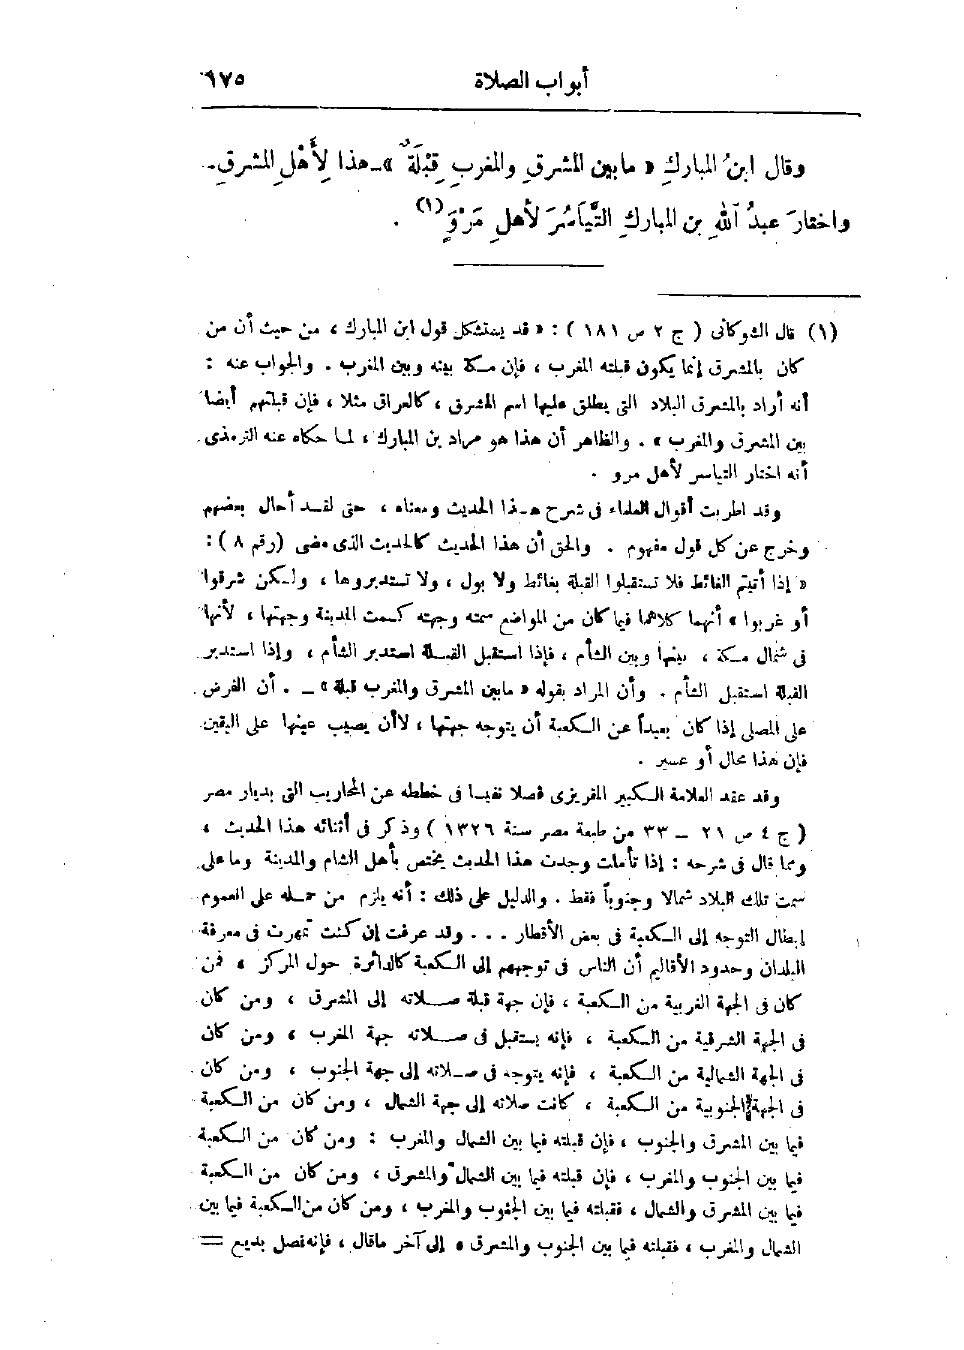 أبواب الصلاة ١٧٥
وقال ابنُ المباركِ « مابين المشرقِ والمغربِ قِبْلَةٌ » ـ هذا لِأَهْلِ المشرقِ ـ
واختارَ عبدُ اللهِ بن المباركِ التَّيَاسُرَ لأهلِ مَرْوٍ (١) .
(١) قال الشوكانى ( ج ٢ ص ١٨١ ) : « قد يستشكل قول ابن المبارك ، من حيث أن من
كان بالمشرق إنما يكون قبلته المغرب ، فإن مكة بينه وبين المغرب . والجواب عنه :
أنه أراد بالمشرق البلاد التى يطلق عليها اسم المشرق ، كالعراق مثلا ، فإن قبلتهم أيضا
بين المشرق والمغرب » . والظاهر أن هذا هو مراد بن المبارك ، لما حكاه عنه الترمذى
أنه اختار التياسر لأهل مرو .
وقد اضطربت أقوال العلماء فى شرح هذا الحديث ومعناه ، حتى لقد أحال بعضهم
وخرج عن كل قول مفهوم . والحق أن هذا الحديث كالحديث الذى مضى (رقم ٨ ) :
« إذا أتيتم الغائط فلا تستقبلوا القبلة بغائط ولا بول ، ولا تستدبروها ، ولكن شرقوا
أو غربوا » أنهما كلاهما فيما كان من المواضع سمته وجهته كسمت المدينة وجهتها ، لأنها
فى شمال مكة ، بينها وبين الشأم ، فإذا استقبل القبلة استدبر الشأم ، وإذا استدبر
القبلة استقبل الشأم . وأن المراد بقوله « مابين المشرق والمغرب قبلة » ـ . أن الفرض
على المصلى إذا كان بعيداً عن الكعبة أن يتوجه جهتها ، لاأن يصيب عينها على اليقين
فإن هذا محال أو عسير .
وقد عقد العلامة الكبير المقريزى فصلا نفيسا فى خططه عن المحاريب التى بديار مصر
( ج ٤ ص ٢١ ـ ٣٣ من طبعة مصر سنة ١٣٢٦ ) وذكر فى أثنائه هذا الحديث ،
ومما قال فى شرحه : إذا تأملت وجدت هذا الحديث يختص بأهل الشام والمدينة وما على
سمت تلك البلاد شمالا وجنوباً فقط . والدليل على ذلك : أنه يلزم من حمله على العموم
إبطال التوجه إلى الكعبة فى بعض الأقطار . . . وقد عرفت إن كنت تمهرت فى معرفة
البلدان وحدود الأقاليم أن الناس فى توجههم إلى الكعبة كالدائرة حول المركز ، فمن
كان فى الجهة الغربية من الكعبة ، فإن جهة قبلة صلاته إلى المشرق ، ومن كان
فى الجهة الشرقية من الكعبة ، فإنه يستقبل فى صلاته جهة المغرب ، ومن كان
فى الجهة الشمالية من الكعبة ، فإنه يتوجه فى صلاته إلى جهة الجنوب ، ومن كان
فى الجهة الجنوبية من الكعبة ، كانت صلاته إلى جهة الشمال ، ومن كان من الكعبة
فيما بين المشرق والجنوب ، فإن قبلته فيما بين الشمال والمغرب : ومن كان من الكعبة
فيما بين الجنوب والمغرب ، فإن قبلته فيما بين الشمال والمشرق ، ومن كان من الكعبة
فيما بين المشرق والشمال ، فقبلته فيما بين الجنوب والمغرب ، ومن كان من الكعبة فيما بين
الشمال والمغرب ، فقبلته فيما بين الجنوب والمشرق » إلى آخر ماقال ، فإنه فصل بديع =